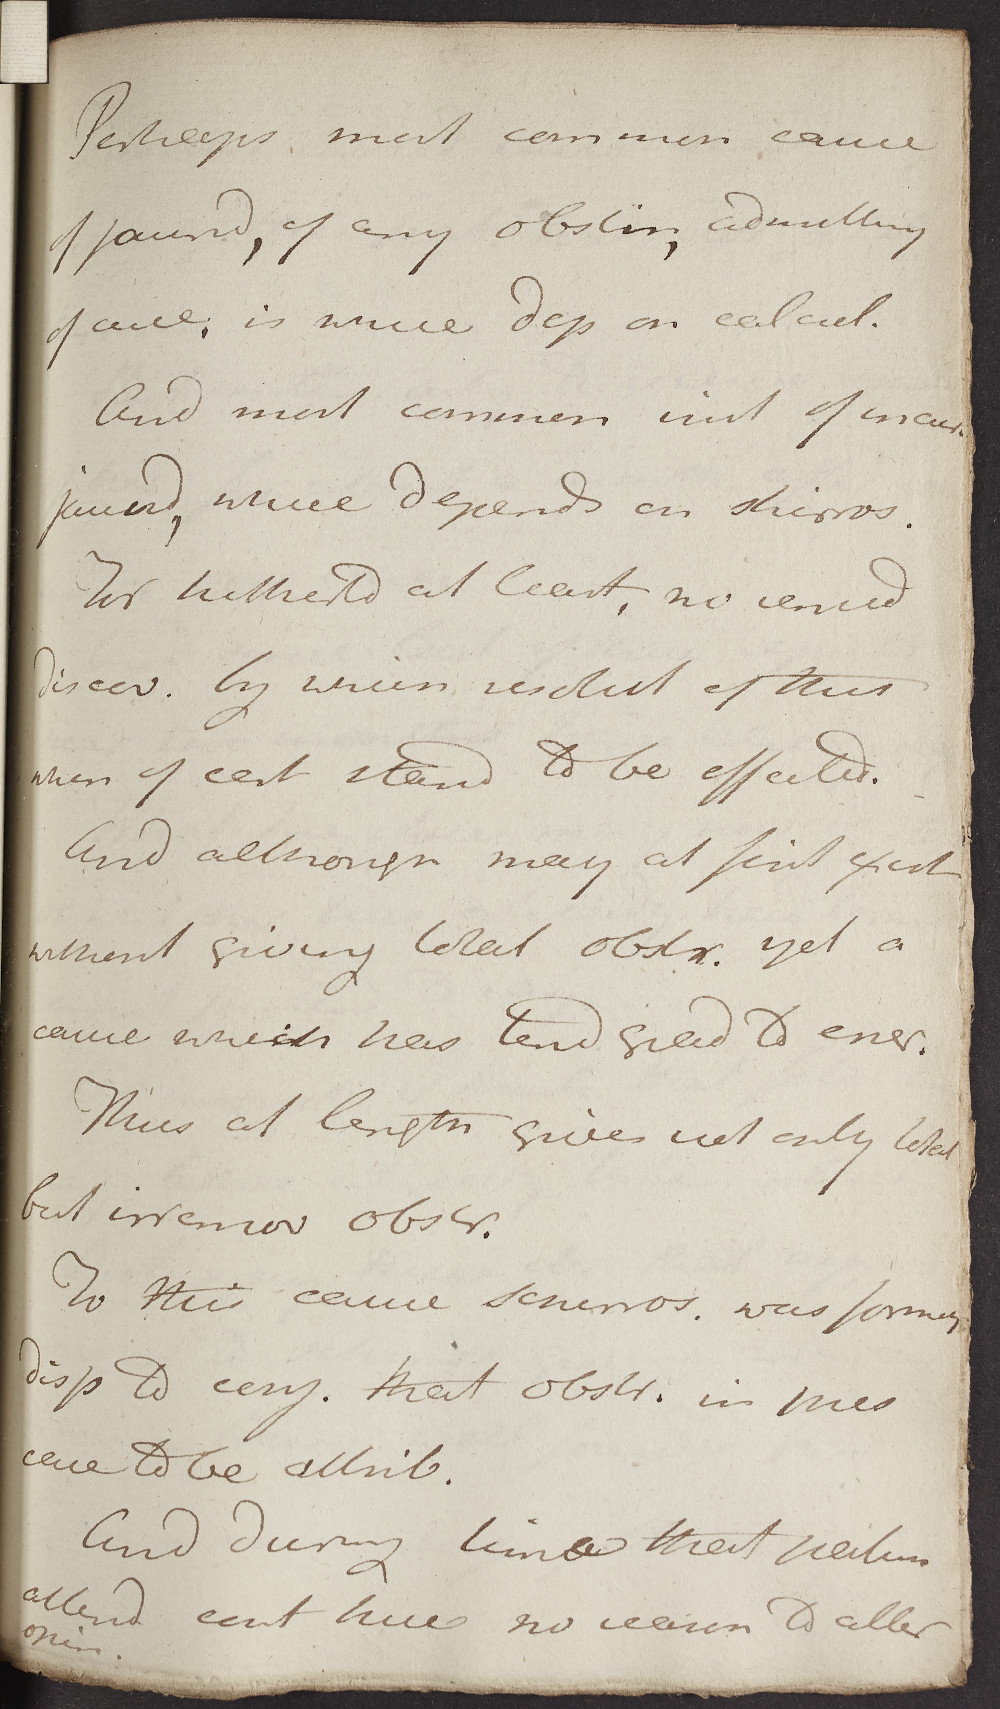 Perhaps most common cause
of jaund, of any obstin, admitting
of cure, is where dep on calcul.
And most common inst of incur.
jaund, where depends on skirros.
For hitherto at least, no remed
discov. by which resolut of this
when of cert stand to be effected.
And although may at first exist
without giving total obstr. yet a
cause which has tend grad to encr.
Thus at length gives not only total
but irremov obstr.
To this cause schirros. was formerly
disp to conj. that obstr. in pres
case to be attrib.
And during time that patien
attend cont have no reason to alter
opin.